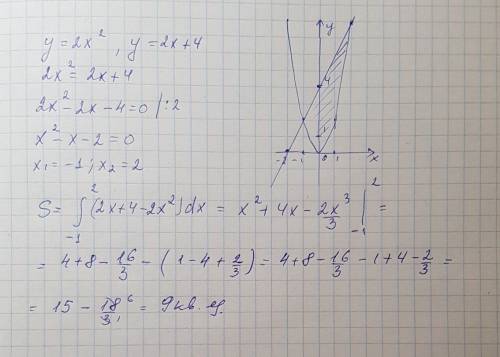 y = 2x², y = 2x+4
2x² = 2x+4
2x² - 2x - 4 = 0 |:2
x² - x - 2 = 0
x₁ = -1; x₂ = 2
S = ∫₋₁² (2x+4-2x²)dx = x² + 4x - 2x³/3 |₋₁² =
= 4+8 - 16/3 - (1-4+2/3) = 4+8 - 16/3 - 1 + 4 - 2/3 =
= 15 - 18⁶/3₁ = 9 кв. ед.
y
4
1
-2 -1 0 1 x